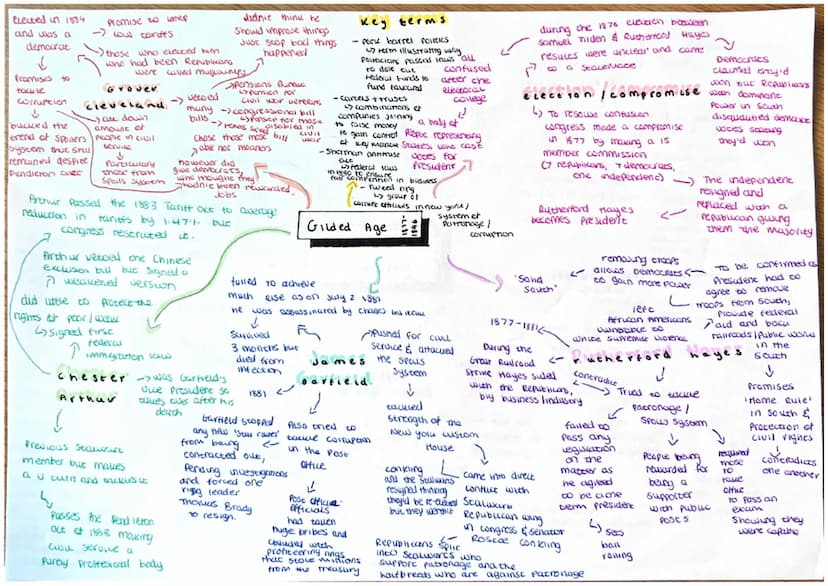 Elected in 1884
and was a
democrat
Promise to keep
low tariffs
those who elected him
who had been Republicans
were called mugwumps
Promises to
tackle
corruption
Grover
Cleveland
cut down
amount of
people in civil
service
Particularly
those from
spoils system
bucked the
trend of spoils
system that still
remained despite
Pendleton act
didnt think he
should improve things
just stop bad things
happened
vetoed
many
bills
Pensions bureau
Pension for
civil war veterans
congressional bill
Pension for those
disabled in
civil war
however did
give democrats,
who thought they
hadnt been rewarded,
jobs
Key terms
- Pork barrel politics
term illustrating way
Politicians passed laws
to dole out
Federal funds to
fund favoured
- combinations of
companies joining
to raise money
to gain control
of key market
- Sherman antitrust
act
federal law
in 1890 to ensure
fair competition in business
- Tweed ring
group of
corrupt officials in new york /
system of
Patronage /
corruption
all
confused
after the
electoral
college
a body of
People representing
States who cast
votes for
President
during the 1876 election between
Samuel Tilden & Rutherford Hayes
results were unclear and came
to a stalemate
Election/compromise
Democrats
claimed they'd
won but Republicans
with dominant
Power in South
disqualified democrat
votes stating
they'd won
To resolve confusion
congress made a compromise
in 1877 by making a 15
member commission
(7 republicans, 7 democrats,
one independent)
The independent
resigned and
replaced with a
republican giving
them the majority
Rutherford Hayes
becomes President
Gilded Age
1877-
1896
Arthur passed the 1883 Tariff act to average
reduction in tariffs by 1.47% but
congress restricted it.
Arthur vetoed the Chinese
exclusion bill but signed a
weakened version
did little to protect the
rights of poor/
signed first
federal
immigration law
Chester
Arthur
was Garfield's
Vice President so
takes over after his
death
Previous Stalwart
member but makes
a U turn and
Passes the Pendleton
act of 1883 making
civil service a
Purely Professional body
failed to achieve
much else as on July 2 1881
he was assassinated by Charles
Survived
3 months but
died from
infection
1881
James
Garfield
Pushed for civil
service & attacked
the spoils
system
Garfield stopped
any new 'star routes'
from being
contracted out,
Pending investigations
and forced one
ring leader
Thomas Brady
to resign.
Also tried to
tackle corruption
in the Post
office
Post office
officials
had taken
huge bribes and
colluded with
profiteering rings
that stole millions
from the treasury
attacked
strength of the
New York custom
House
Conkling
and the Stalwarts
resigned thinking
they'd be re-elected
but they werent
came into direct
conflict with
Stalwart
Republican wing
in congress & senator
Roscoe Conkling
Republicans split
into Stalwarts who
support patronage and the
halfbreeds who are against patronage
'Solid
South'
removing troops
allows Democrats
to gain more power
To be confirmed as
President had to
agree to remove
troops from South,
Provide federal
aid and back
railroads/public work
in the
South
left
African Americans
vulnerable to
white supremacist violence
1877-1881
Rutherford Hayes
During the
Great Railroad
Strike Hayes sided
with the Republicans,
big business/industry
contradicts
Tried to tackle
Patronage/
Spoils system
Promises
'Home Rule'
in South &
Protection of
civil rights
contradicts
one another
failed to
pass any
legislation
on the
matter as
he agreed
to be a one
term president
sets
ball
rolling
People being
rewarded for
being a
supporter
with public
posts
required
those
to take
office
to pass an
exam
showing they
were capable